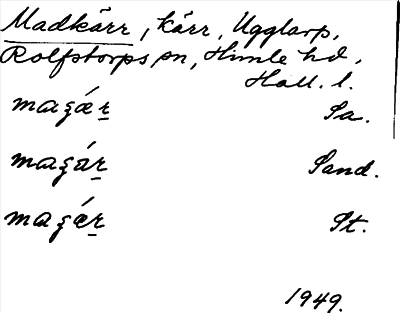 Madkärr, kärr, Ugglarp,
Rolfstorps sn, Himle hd,
Hall. l.
maʒǽr Sa.
maʒár Sand.
maʒǽr St.
1949.